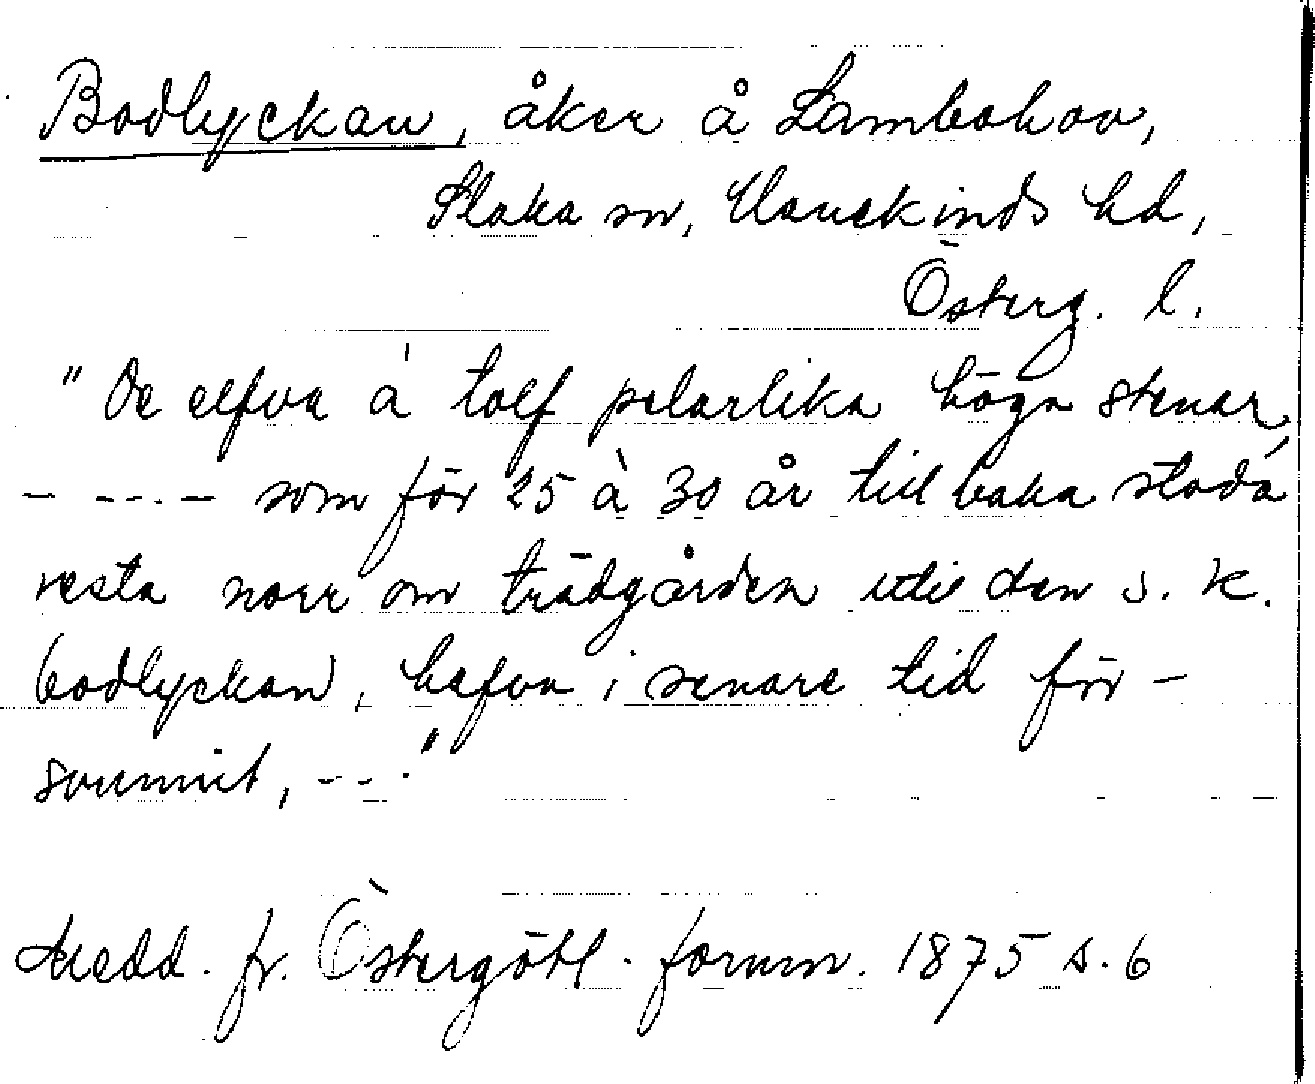 Bodlyckan, åker å Lambohov,
Slaka sn, Hanekinds hd,
Österg. l.
"De elfva à tolf pelarlika höga stenar,
- --.- som för 25 à 30 år tillbaka stodo
resta norr om trädgården uti den s. k.
bodlyckan, hafva i senare tid för-
svunnit, --."
Medd. fr. Östergötl. fornm. 1875 s. 6